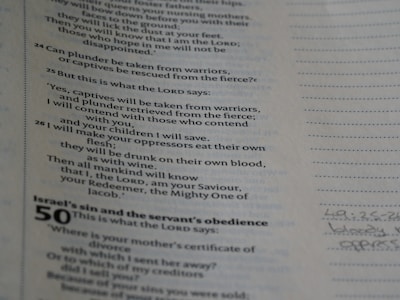 foster fathers,
their queens your nursing mothers.
They will bow down before you with their
faces to the ground;
they will lick the dust at your feet.
Then you will know that I am the LORD;
those who hope in me will not be
disappointed.'
24 Can plunder be taken from warriors,
or captives be rescued from the fierce?
25 But this is what the LORD says:
'Yes, captives will be taken from warriors,
and plunder retrieved from the fierce;
I will contend with those who contend
with you,
and your children I will save.
26 I will make your oppressors eat their own
flesh;
they will be drunk on their own blood,
as with wine.
Then all mankind will know
that I, the LORD, am your Saviour,
your Redeemer, the Mighty One of
Jacob.'
Israel's sin and the servant's obedience
50 This is what the LORD says:
'Where is your mother's certificate of
divorce
with which I sent her away?
Or to which of my creditors
did I sell you?
Because of your sins you were sold;
because of your
49:25-2
bloody
oppres